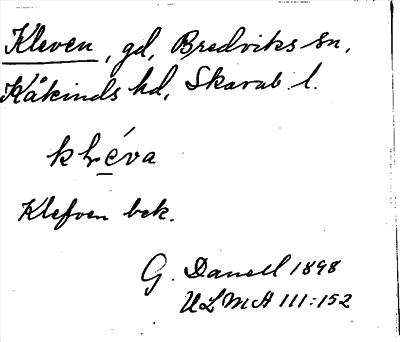 Kleven, gd, Bredviks sn,
Kåkinds hd, Skarab. l.
Klefven bek.
G. Danell 1898
ULMA 111:152